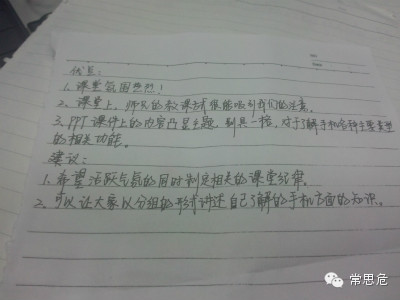 优点:
1.课堂氛围
2.课堂上,师兄的教课方式很能吸引我们的注意。
3.PPT课件上的内容凸显主题,别具一格,对于了解手机各种主要类型
的相关功能。
建议:
1.希望活跃气氛的同时制定相关的课堂纪律。
2.可以让大家以分组的形式讲述自己了解的手机方面的知识。
常思危